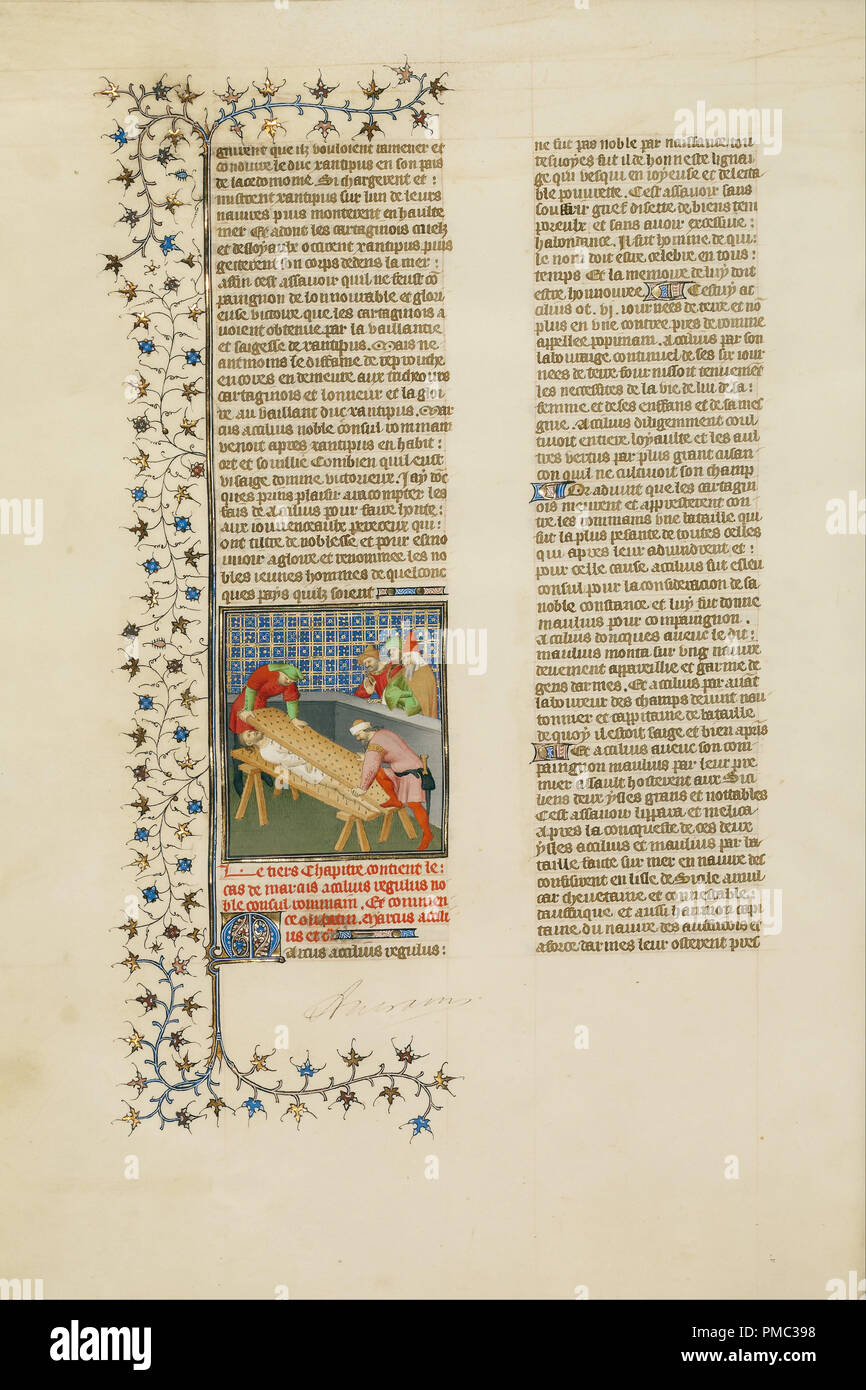 griuent que ilz vouloient ramener et
conduire le duc xantipus en son pais
de lacedomone. Si chargerent et:
mistrent xantipus sur lun de leurs
nauires puis monterent en haulte
mer Et adont les cartaginois cruelz
et desloyaulx occirent xantipus puis
getterent son corps dedens la mer:
affin cest assauoir quil ne feust co
paignon de lonnourable et glori
euse victoire que les cartaginois a
uoient obtenue par la vaillantie
et saigesse de xantipus. Mais ne
antmoins le diffame de reprouche
encores en demeure aux
cartaginois et lonneur et la gloi
re au vaillant duc xantipus. Mar
cus acilius noble consul rommain
venoit apres xantipus en habit:
ort et souillie Combien quil eust
visaige domme victorieux. Jay doc
ques prins plaisir a racompter les
fais de acilius pour faire honte:
aux iouuenceaulx pereceux qui:
ont tiltre de noblesse et pour esmo
uuoir a gloire et renommee les no
bles ieunes hommes de quelconc
ques pays quilz soient
Le tiers Chapitre contient le:
cas de marcus acilius regulus no
ble consul rommain. Et commen
ce ou latin. Marcus acili
us et c
Marcus acilius regulus:
ne fut pas noble par naissance tou
tesuoyes fut il de honneste lignai
ge qui vesqui en ioyeuse et delecta
ble pourrette. Cest assauoir sans
souffrir grief disette de biens tem
poreulx et sans auoir excessiue:
habondance. Il fut homme de qui:
le nom doit estre celebre en tous:
temps Et la memoire de luy doit
estre honnouree Cestuy at
cilius ot. vi. iournees de terre et no
plus en vne contree pres de romme
appellee popinam. Acilius par son
labouraige continuel de ses six iour
nees de terre fournissoit
les necessites de la vie de lui de sa:
femme et de ses enffans et de sa mes
gnie. Acilius diligemment coul
tiuoit entiere loyaulte et les aul
tres vertus par plus grant cusan
con quil ne cultiuoit son champ
Or aduint que les cartagin
ois meurent et appresterent con
tre les rommains vne bataille qui
fut la plus pesante de toutes celles
qui apres leur aduindrent et:
pour celle cause acilius fut esleu
consul pour la consideracion de sa
noble constance et luy fut donne
manlius pour compaignon.
Acilius doncques auecc le dit:
manlius monta sur vng nauire
deuement appareillie et garnie de
gens darmes. Et acilius par auat
laboureur des champs deuint nau
tonnier et cappitaine de bataille
de quoy il estoit saige et bien apris
Et acilius auecc son com
paingnon manlius par leur pre
mier assault hosterent aux Sici
liens deux ysles grans et nottables
Cest assauoir lippara et melica
Apres la conqueste de ces deux
ysles acilius et manlius par ba
taille faitte sur mer en nauire des
confirent en lisle de Sicile amil
car cheuetaine et connestable
dauffrique et aussi hannon capi
taine du nauire des auffricois et
a force darmes leur osterent pres
alamy
alamy stock photo
Image ID: PMC398
www.alamy.com